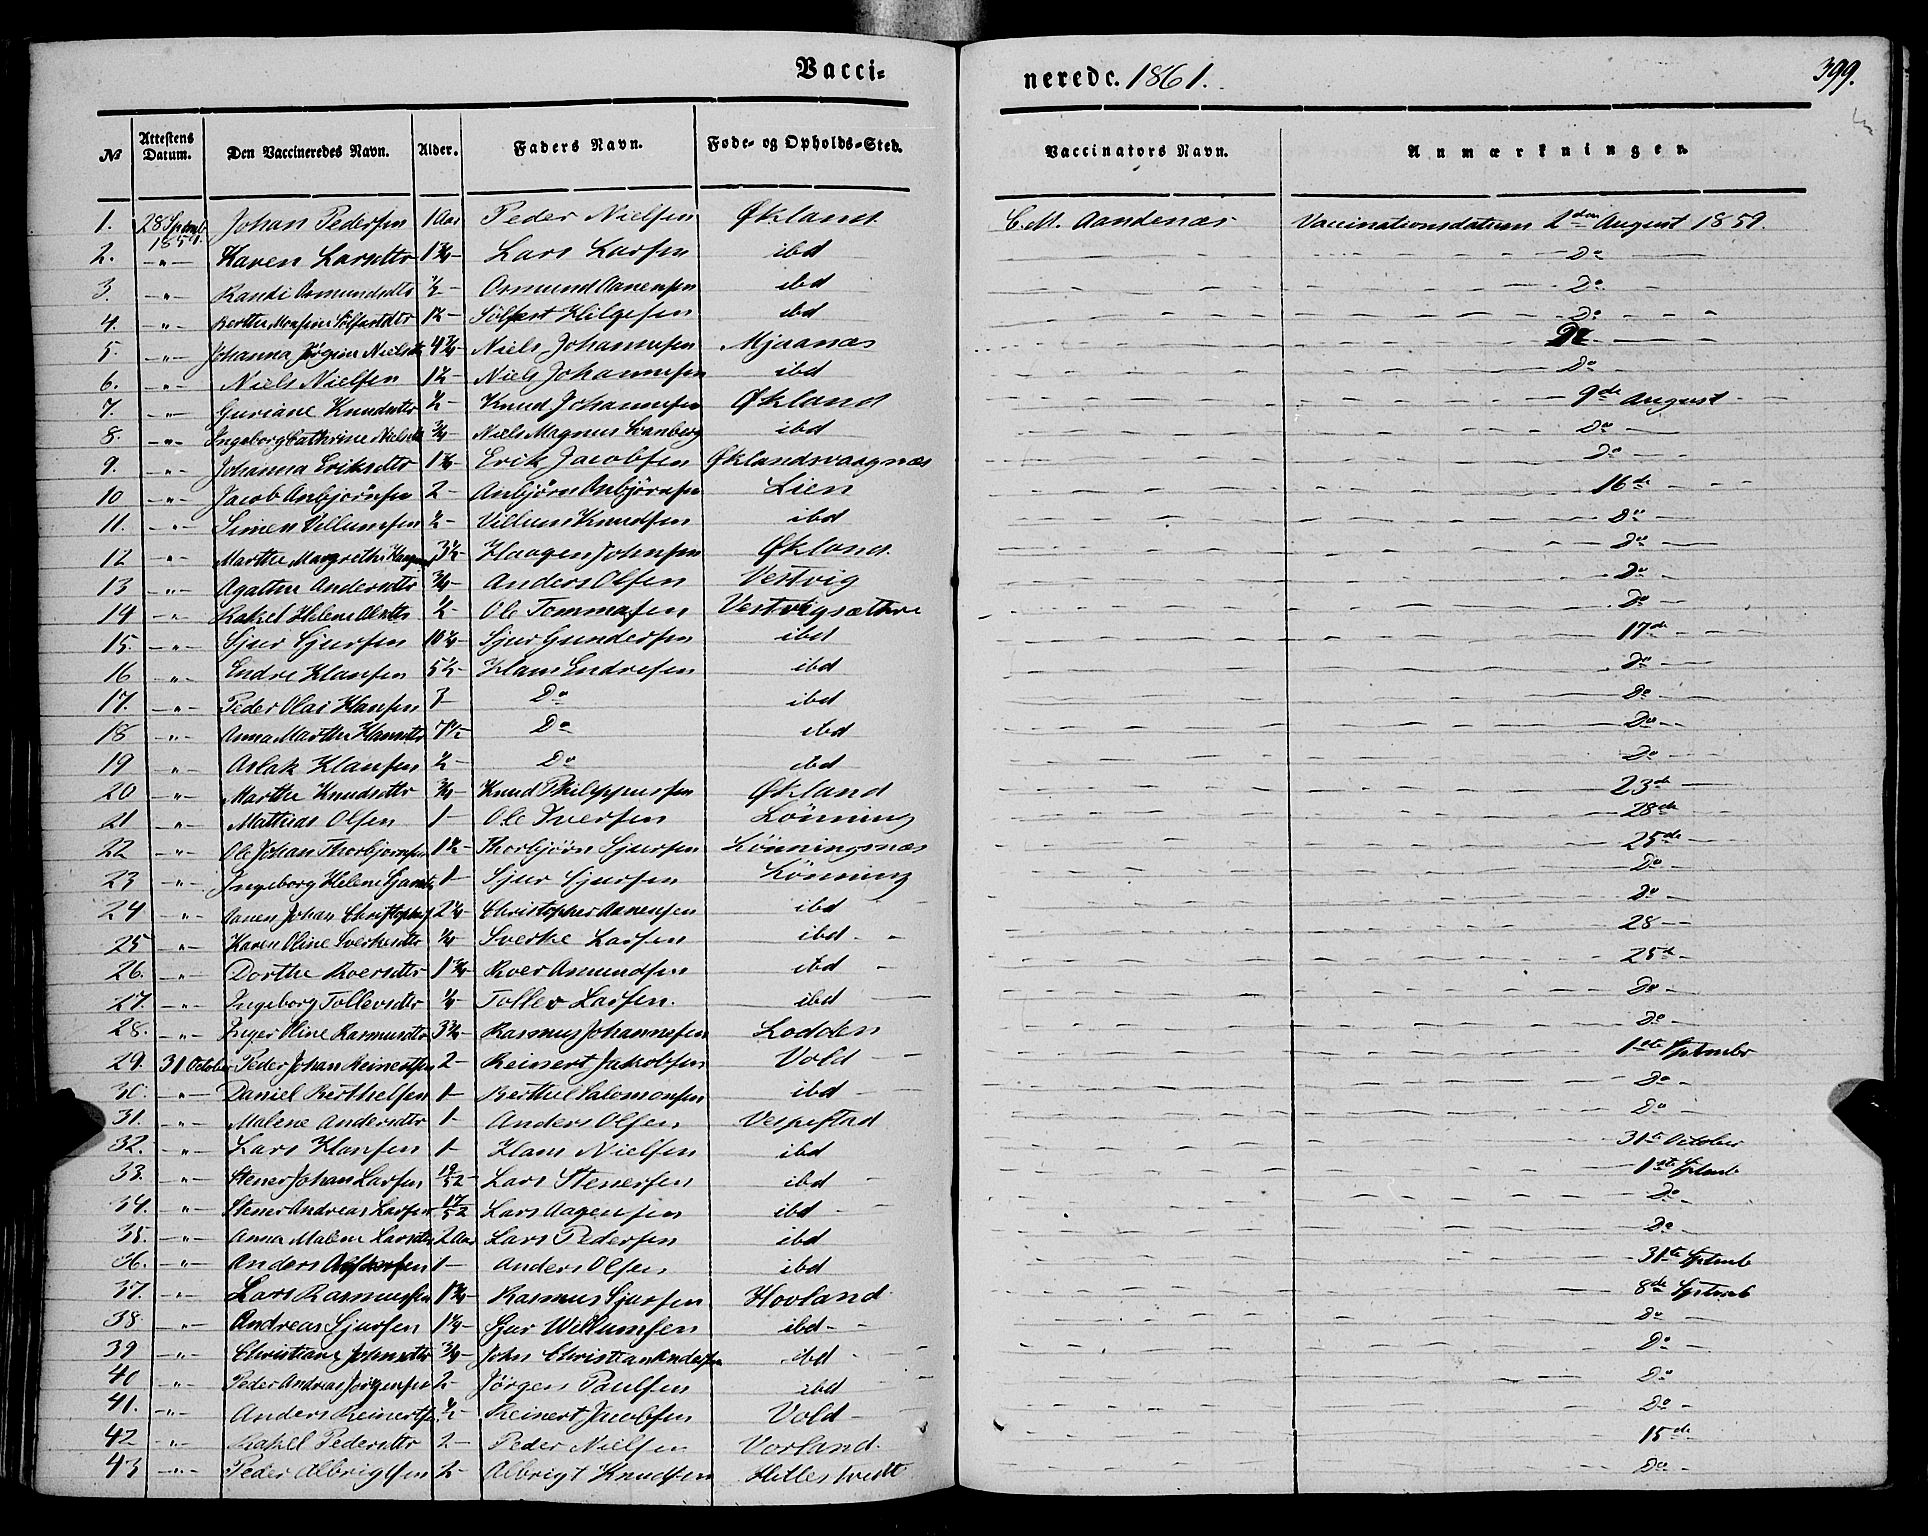 Vacci-
neredc. 1861.
399.
№ Attestens Datum. Den Vaccineredes Navn. Alder. Faders Navn. Føde- og Opholds-Sted. Vaccinators Navn. Anmærkningen.
1. 28 Septemb 1859. Johan Pedersen 1 Aar Peder Nielsen Økland C. M. Aandenæs Vaccinationsdatum 2den August 1859.
2. -"- Karen Larsdtr Lars Larsen ibd Do
3. -"- Randi Osmundsdtr ½ - Osmund Aanensen ibd Do
4. -"- Berthe Monsine Sølfæstdtr 1½ - Sølfæst Helgesen ibd Do
5. -"- Johanna Jørgine Nielsdtr Niels Johannesen Mjaanæs Do
6. -"- Niels Nielsen 1½ - Niels Johannesen ibd Do
7. -"- Guriane Knudsdtr ½ - Knud Johannesen Økland 9de August
8. -"- Ingeborg Cathrine Nielsdtr ¾ - Niels Magnus Svanberg ibd Do
9. -"- Johanna Eriksdtr Erik Jacobsen Øklandsvaagnæs Do
10 -"- Jacob Anbjørnsen 2 - Anbjørn Anbjørnsen Lien 16de
11. -"- Simen Villumsen ½ - Villum Knudsen ibd Do
12 -"- Marthe Margrethe 3½ - Haagen Johnsen Økland Do
13 -"- Agathe Andersdtr ¾ - Anders Olsen Vestvig Do
14 -"- Rakel Helene Olsdtr ½ - Ole Tommasen Vestvigsæthre Do
15. -"- Sjur Sjursen 10¼ - Sjur Gundersen ibd 17de
16 -"- Endre Hansen 5½ - Hans Endresen ibd Do
17. -"- Peder Olai Hansen 3 - Do ibd Do
18 -"- Anna Marthe Hansdtr 7½ - Do ibd Do
19 -"- Aslak Hansen ½ - Do ibd Do
20 -"- Marthe Knudsdtr ¾ - Knud Philippussen Økland 23de
21 -"- Mathias Olsen 1 - Ole Iversen Lönning 28de
22 -"- Ole Johan Thorbjørnsen 1½ - Thorbjørn Sjursen Lönningsnæs 25de
23 -"- Ingeborg Helene Sjursdtr 1 - Sjur Sjursen Lönning Do
24 -"- Aanen Johan Christophers 2¼ - Christopher Aanensen ibd Do
25 -"- Karen Oline Sverkesdtr ¼ - Sverke Larsen ibd 28
26. -"- Dorthe Roersdtr 1¾ - Roer Asmundsen ibd 25de
27. -"- Ingeborg Tollevsdtr ¼ - Tollev Larsen. ibd Do
28. -"- Inger Oline Rasmusdtr 3¾ - Rasmus Johannesen Lodden Do
29. 31 October Peder Johan Reinertsen 2 - Reinert Jakobsen Vold 1ste Septembr
30. -"- Daniel Berthelsen 1 - Berthel Salomonsen ibd Do
31. -"- Malene Andersdtr 1 - Anders Olsen Vespestad Do
32. -"- Lars Hansen 1 - Hans Nielsen ibd 31te October
33. -"- Stener Johan Larsen 19/52 - Lars Stenersen ibd 1ste Septemb
34. -"- Stener Andreas Larsen 17/52 Lars Aagensen ibd Do
35. -"- Anna Malene Larsdtr 2 Aar Lars Pedersen ibd Do
36. -"- Anders Andersen 1 - Anders Olsen ibd 31te Septemb
37. -"- Lars Rasmussen 1¾ - Rasmus Sjursen Hovland 8de Septemb
38. -"- Andreas Sjursen 1¼ - Sjur Willumsen ibd Do
39 -"- Christiane Johnsdtr ¾ - John Christian Andersen ibd Do
40 -"- Peder Andreas Jørgensen 2 - Jørgen Paulsen ibd Do
41. -"- Anders Reinertsen ½ - Reinert Jacobsen Vold Do
42 -"- Rakel Pedersdtr 2 - Peder Nielsen Vorland 15de
43 -"- Peder Albrigtsen 2 - Albrigt Knudsen Hillestvedt Do